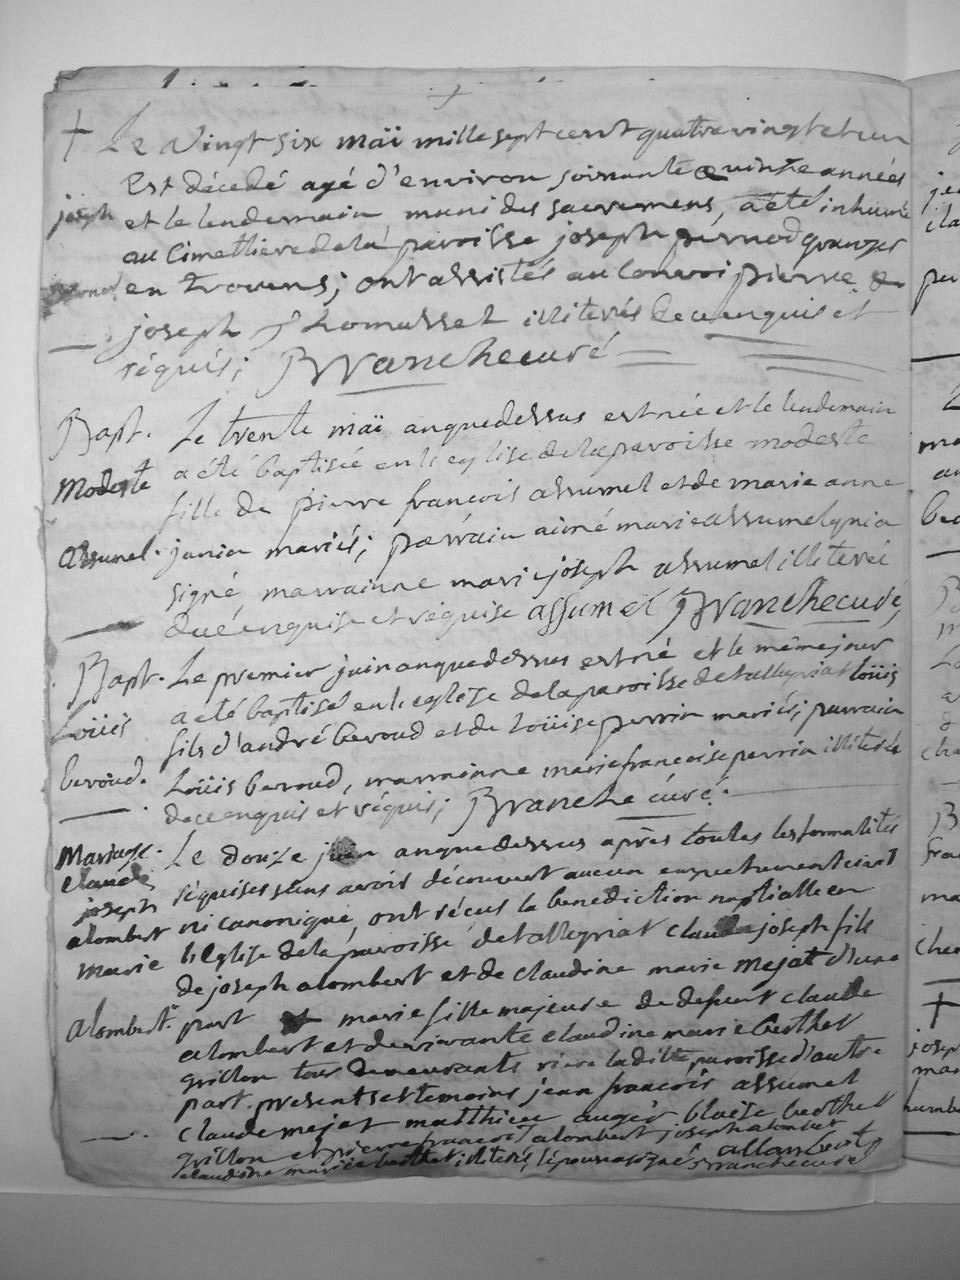 + Le vingt six maï mille sept cent quatre vingt et un
Est décédé agé d'environ soissante quinze années
joseph et le lendemain muni des sacremens, a été inhumé
au cimettiere de la paroisse joseph pernod granger
en trovens; ont assistés au convoi pierre &
joseph thomasset illiterés de ce enquis et
réquis; Branche curé
Bapt. Le trente maï anquedessus est née et le lendemain
Modeste a été baptisée en l'eglise de la paroisse modeste
fille de pierre françois assumel et de marie anne
Assumel. junia mariés; parrain aimé marie assumel qui a
signé, marrainne marie joseph assumel illiterée
du é enquise et réquise assumel Branche curé,
Bapt. Le premier juin anquedessus est né et le même jour
Loüis a été baptisé en l'eglise de la paroisse de tallegriat loüis
fils d'andré beroud et de loüise perrin mariés; parrain
beroud. Loüis beroud, marrainne marie françoise perrin illiterés
de ce enquis et réquis; Branche curé.
Mariage. Le douze juin anquedessus après toutes les formalités
Claude réquises sans avoir découvert aucun empechement civil
joseph
alombert ni canonique, ont réçus la benediction nuptialle en
marie l'Eglise de la paroisse de tallegriat claude joseph fils
de joseph alombert et de claudine marie mejat d'une
Alombert. part et marie fille majeure de defunt claude
alombert et de vivante claudine marie berthet
grillon tous demeurants riere la ditte paroisse d'autre
part. presents et temoins jean françois assumel
claude mejat matthieu auger blaise berthet
grillon et pierre françois alombert joseph alombert
claudine marie berthet illiterés, l'epoux a signé allombert Branche curé